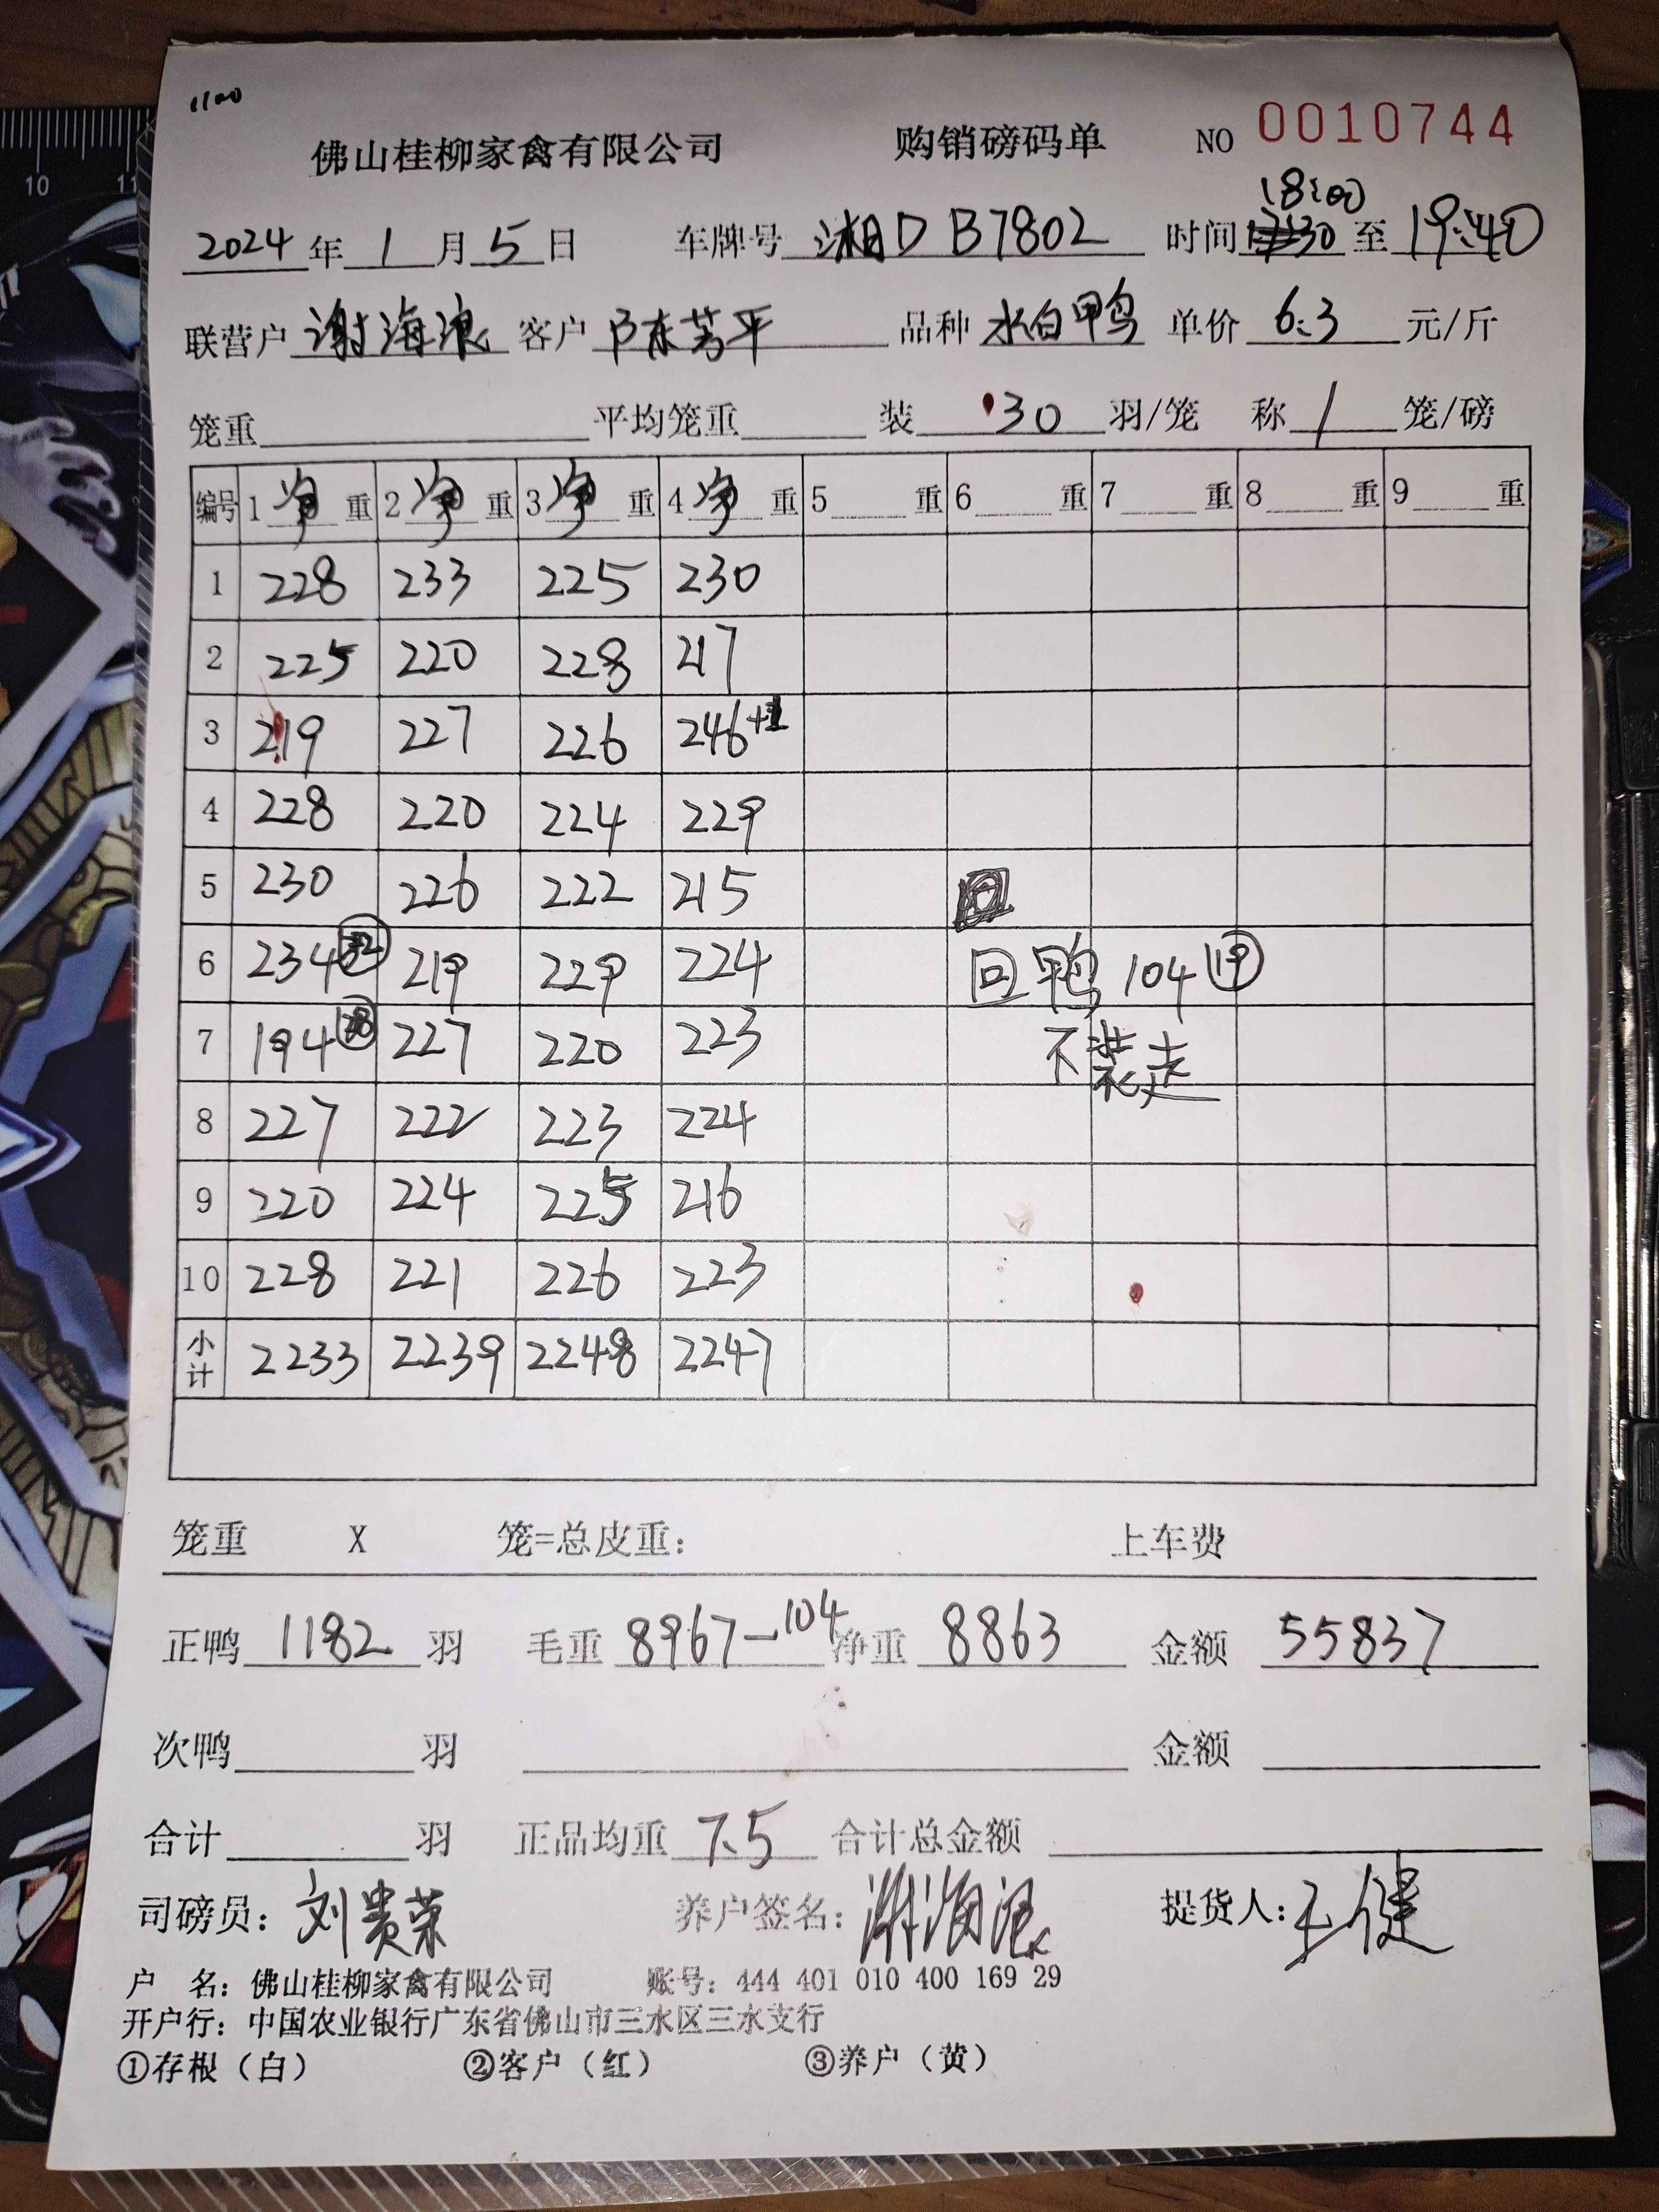 1100
佛山桂柳家禽有限公司 购销磅码单 NO 0010744
18:00
2024年1月5日 车牌号 湘D B7802 时间 至 19:40
联营户 谢海浪 客户 陈芳平 品种 水白鸭 单价 6.3 元/斤
笼重 平均笼重 装 30 羽/笼 称 1 笼/磅
编号 1 净 重 2 净 重 3 净 重 4 净 重 5 重 6 重 7 重 8 重 9 重
1 228 233 225 230
2 225 220 228 217
3 219 227 226 246+1
4 228 220 224 229
5 230 226 222 215
6 234 219 229 224 回鸭 104 19
7 194 28 227 220 223 不装走
8 227 222 223 224
9 220 224 225 216
10 228 221 226 223
小计 2233 2239 2248 2247
笼重 X 笼=总皮重: 上车费
正鸭 1182 羽 毛重 8967-104 净重 8863 金额 55837
次鸭 羽 金额
合计 羽 正品均重 7.5 合计总金额
司磅员: 刘贵荣 养户签名: 谢海浪 提货人: 王健
户 名: 佛山桂柳家禽有限公司 账号: 444 401 010 400 169 29
开户行: 中国农业银行广东省佛山市三水区三水支行
①存根（白） ②客户（红） ③养户（黄）
10 11